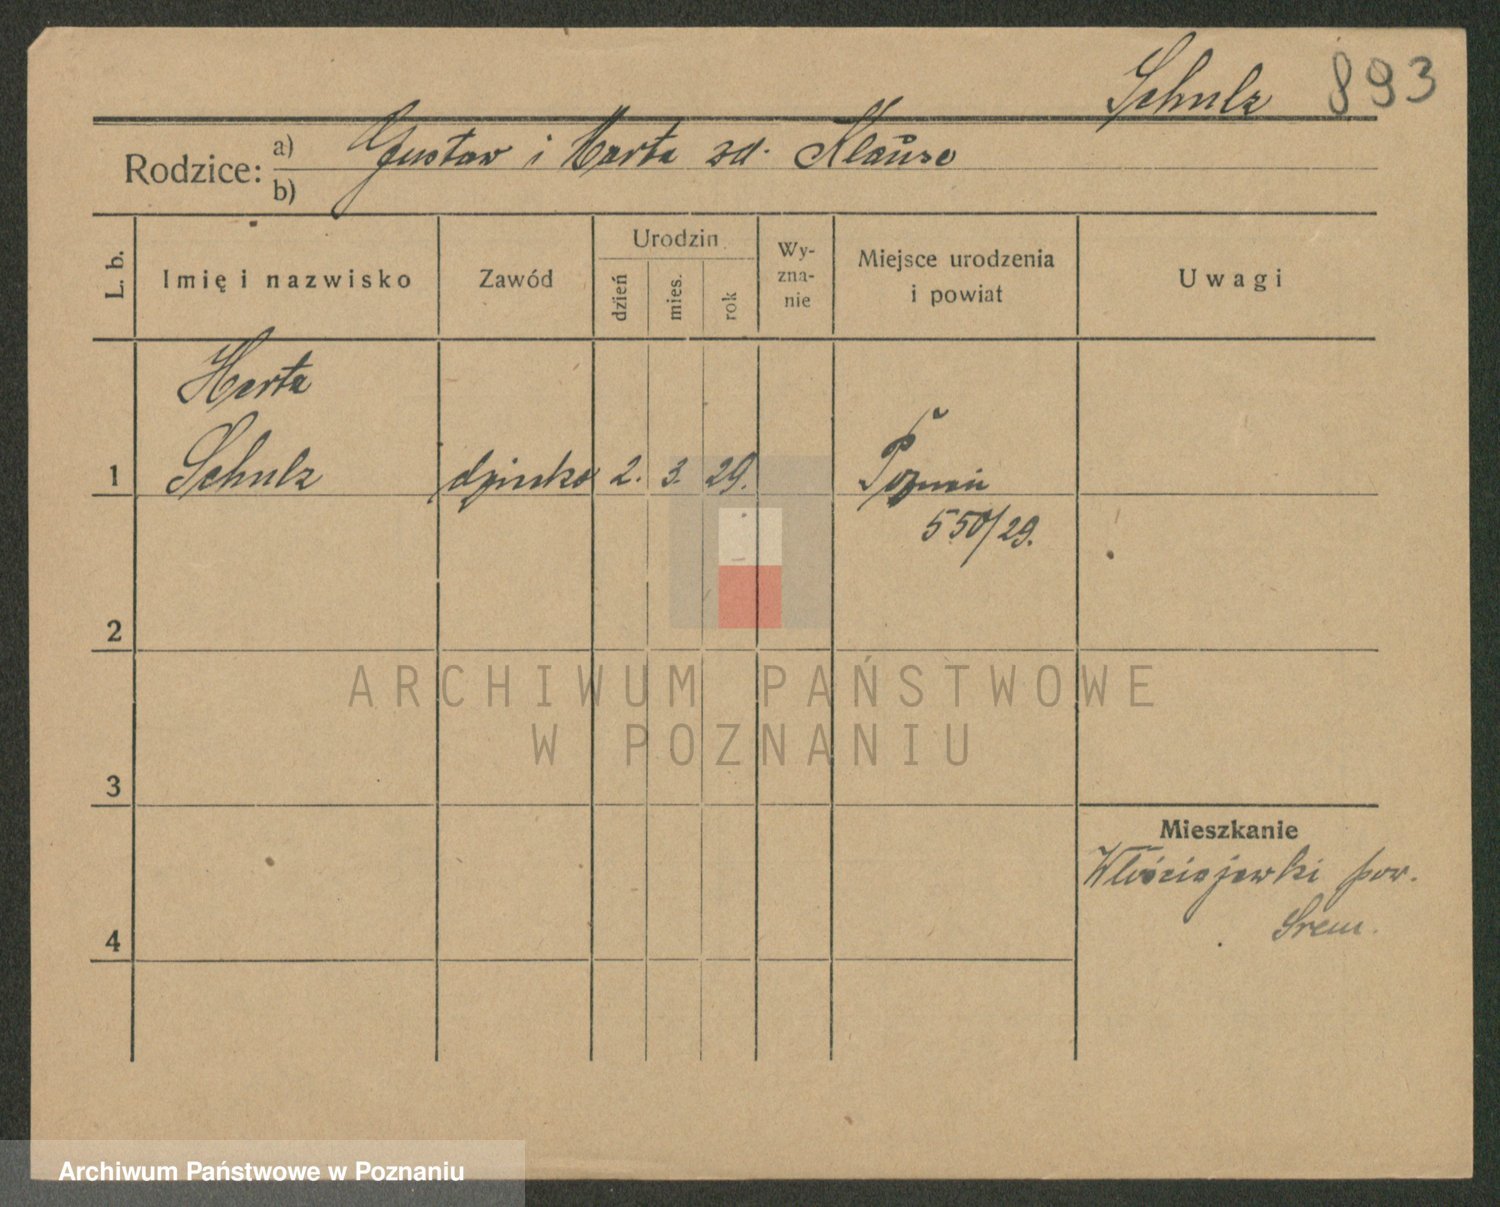 Schulz 893
Rodzice: a) Gustaw i Marta zd. Klause
b)
L. b. Imię i nazwisko Zawód Urodzin dzień mies. rok Wy-zna-nie Miejsce urodzenia i powiat Uwagi
Herta
1 Schulz dziecko 2. 3. 29. Poznań
550/29.
2
ARCHIWUM PAŃSTWOWE
W POZNANIU
3
Mieszkanie
Włościejewki pow.
Śrem.
4
Archiwum Państwowe w Poznaniu